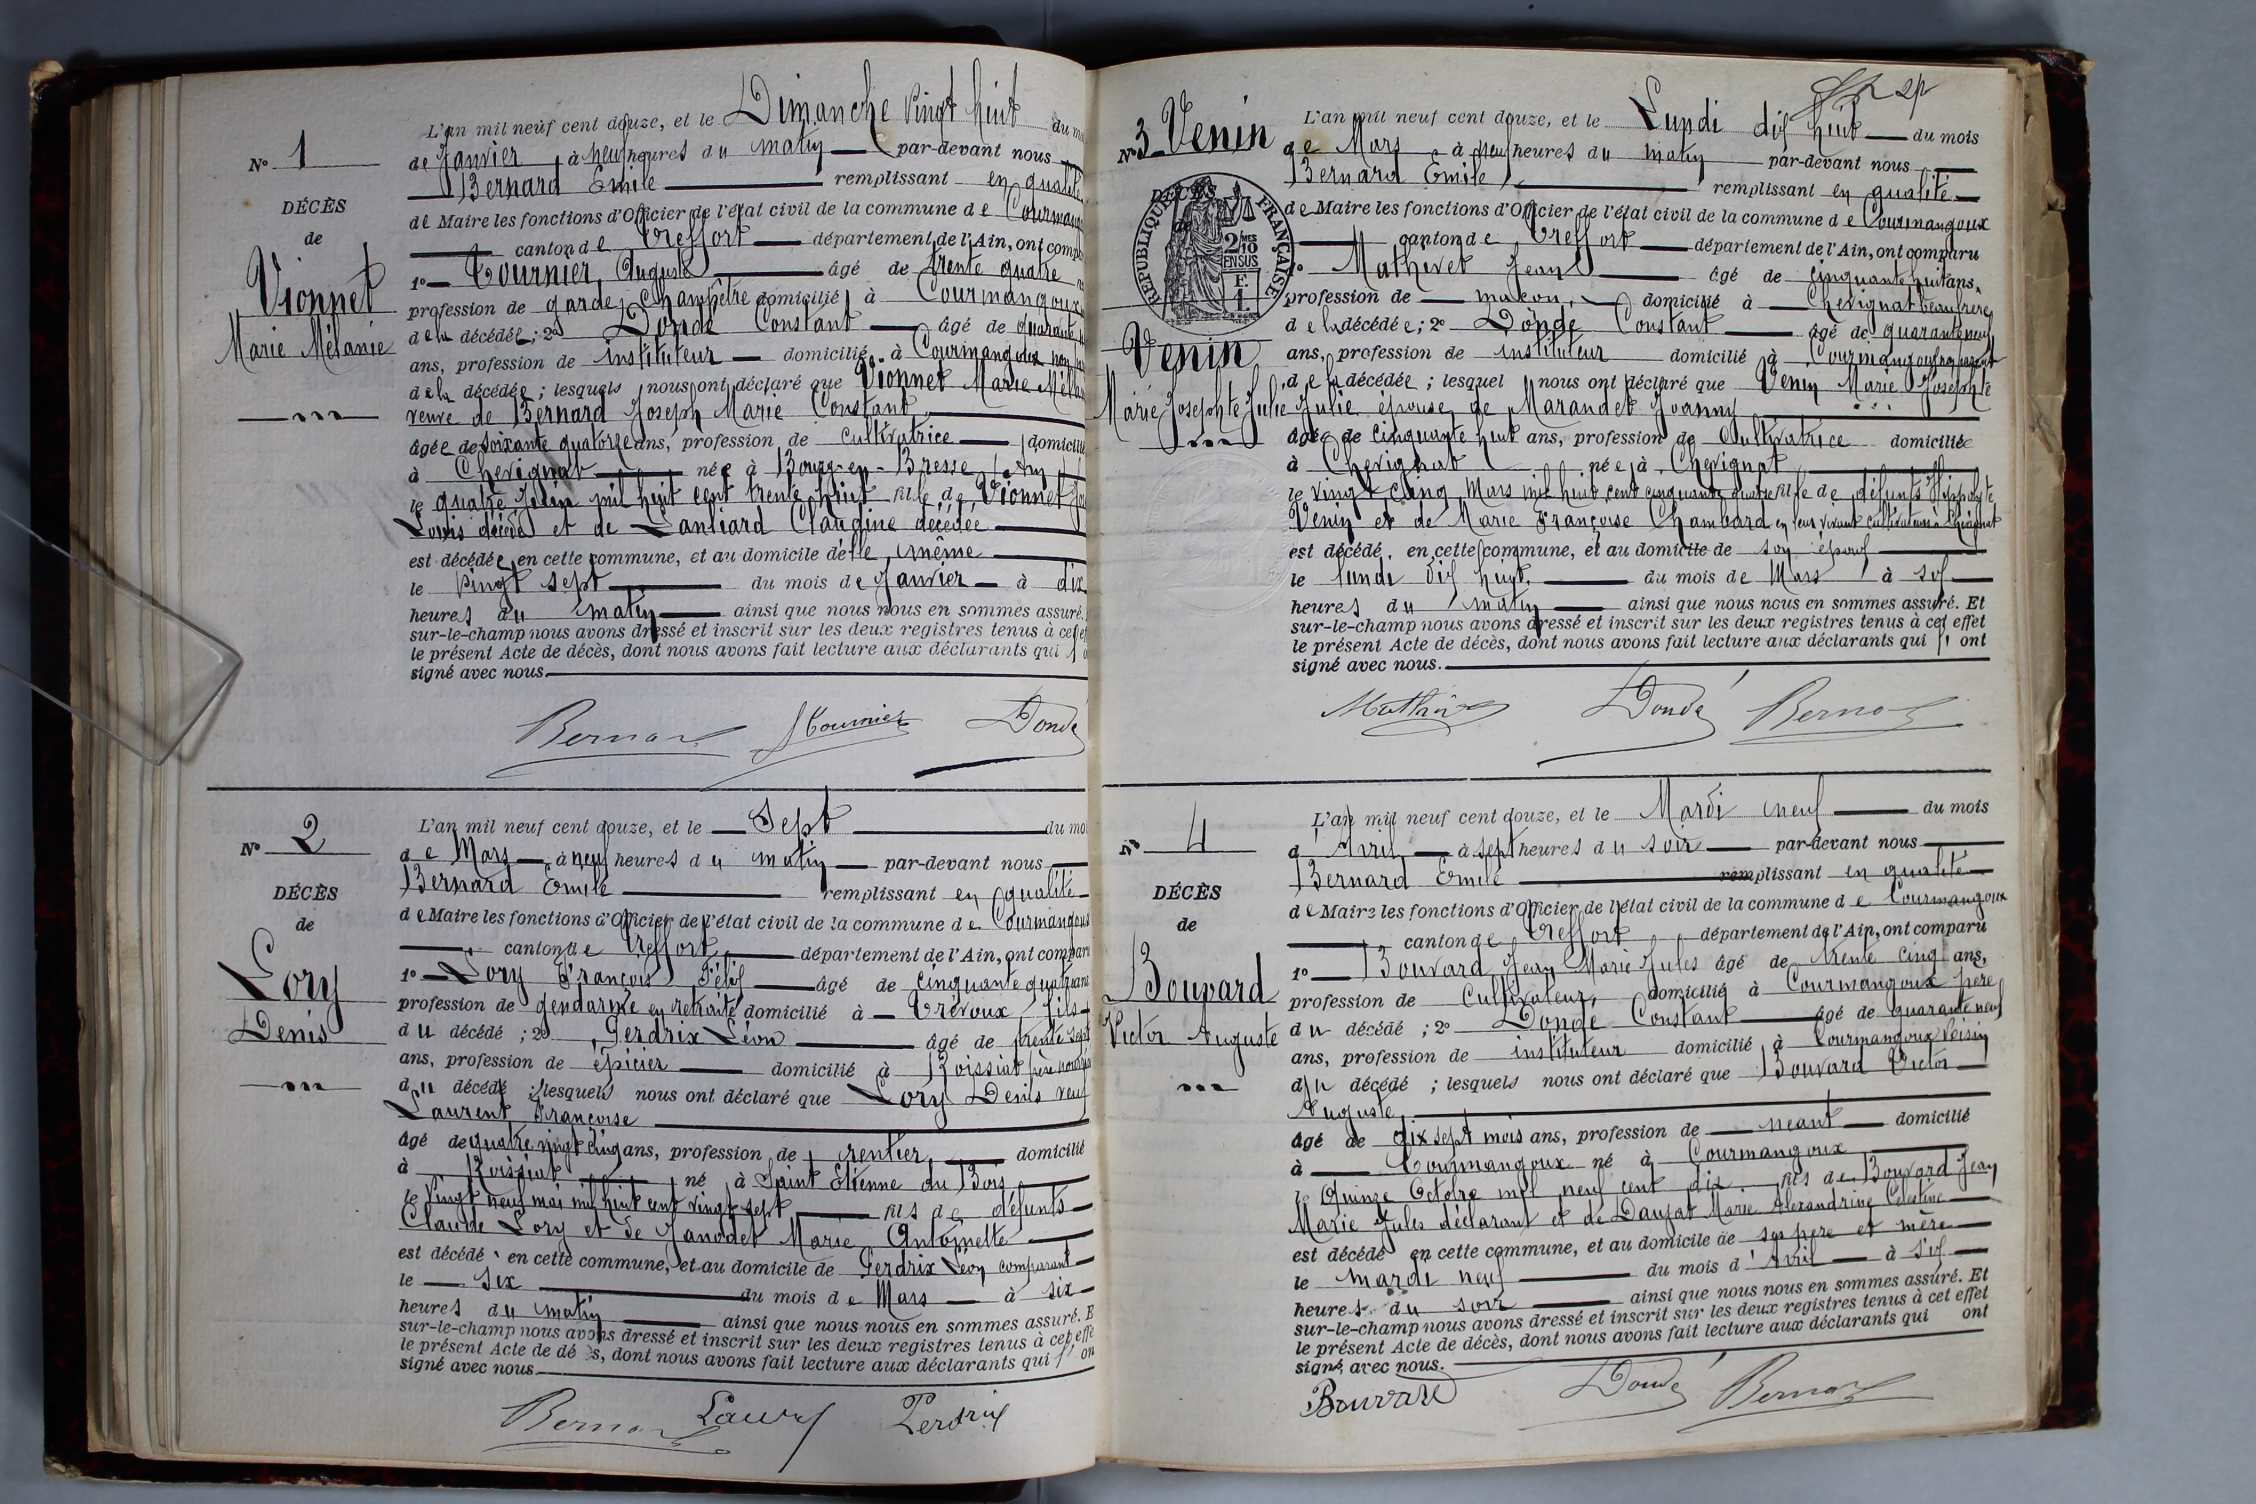 N° 1
DÉCÈS
de
Vionnet
Marie Mélanie
L'an mil neuf cent douze, et le Dimanche vingt huit du
de Janvier à neuf heures du matin par-devant nous
Bernard Emile remplissant en qualité
de Maire les fonctions d'Officier de l'état civil de la commune de
canton de Treffort département de l'Ain, ont
1° Tournier Auguste âgé de trente quatre
profession de garde champêtre domicilié à Courmangoux
de la décédée; 2° Dondé Constant âgé de quarante
ans, profession de instituteur domicilié à Courmangoux non
de la décédée; lesquels nous ont déclaré que Vionnet Marie
veuve de Bernard Joseph Marie Constant
âgée de soixante quatorze ans, profession de cultivatrice
à Chevignat née à Bourg-en-Bresse (Ain)
le quatre mil huit cent trente fille de Vionnet
Louis décédé et de Claudine décédée
est décédée en cette commune, et au domicile d'elle même
le vingt sept du mois de Janvier à dix
heures du matin ainsi que nous nous en sommes assuré.
sur-le-champ nous avons dressé et inscrit sur les deux registres tenus à cet
le présent Acte de décès, dont nous avons fait lecture aux déclarants qui
signé avec nous.
Bernard Tournier Dondé
N° 2
DÉCÈS
de
Lory
Denis
L'an mil neuf cent douze, et le Sept du
de Mars à neuf heures du matin par-devant nous
Bernard Emile remplissant en qualité
de Maire les fonctions d'Officier de l'état civil de la commune de Courmangoux
canton de Treffort département de l'Ain, ont
1° Lory François Félix âgé de cinquante quatre ans
profession de gendarme en retraite domicilié à Trévoux fils
du décédé; 2° Perdrix Léon âgé de trente sept
ans, profession de épicier domicilié à Roissiat
du décédé; lesquels nous ont déclaré que Lory Denis veuf
Laurent Françoise
âgé de quatre vingt cinq ans, profession de rentier domicilié
à Roissiat né à Saint Etienne du Bois
le vingt neuf mai mil huit cent vingt sept fils de défunts
Claude Lory et de Marie Antoinette
est décédé en cette commune, et au domicile de Perdrix Léon comparant
le six du mois de Mars à six
heures du matin ainsi que nous nous en sommes assuré.
sur-le-champ nous avons dressé et inscrit sur les deux registres tenus à cet
le présent Acte de décès, dont nous avons fait lecture aux déclarants qui
signé avec nous
Bernard Perdrix
N° 3 Venin
RÉPUBLIQUE FRANÇAISE
DÉCÈS
de
2/10
EN SUS
Venin
Marie Josephte Julie
L'an mil neuf cent douze, et le Lundi dix huit du mois
de Mars à neuf heures du matin par-devant nous
Bernard Emile remplissant en qualité
de Maire les fonctions d'Officier de l'état civil de la commune de Courmangoux
canton de Treffort département de l'Ain, ont comparu
1° Mathevet Jean âgé de cinquante huit ans,
profession de maçon, domicilié à Chevignat beau frère
de la décédée; 2° Dondé Constant âgé de quarante neuf
ans, profession de instituteur domicilié à Courmangoux non parent
de la décédée; lesquel nous ont déclaré que Venin Marie Josephte
Julie épouse de Marandet Joanny
âgée de cinquante huit ans, profession de Cultivatrice domiciliée
à Chevignat née à Chevignat
le vingt cinq Mars mil huit cent cinquante quatre fille de défunts Hippolyte
Venin et de Marie Françoise Chambard en leur vivant cultivateurs à Chevignat
est décédé, en cette commune, et au domicile de son époux
le lundi dix huit du mois de Mars à six
heures du matin ainsi que nous nous en sommes assuré. Et
sur-le-champ nous avons dressé et inscrit sur les deux registres tenus à cet effet
le présent Acte de décès, dont nous avons fait lecture aux déclarants qui ont
signé avec nous.
Dondé Bernard
N° 4
DÉCÈS
de
Bouvard
Victor Auguste
L'an mil neuf cent douze, et le Mardi neuf du mois
d'Avril à sept heures du soir par-devant nous
Bernard Emile remplissant en qualité
de Maire les fonctions d'Officier de l'état civil de la commune de Courmangoux
canton de Treffort département de l'Ain, ont comparu
1° Bouvard Jean Marie Jules âgé de trente cinq ans,
profession de Cultivateur, domicilié à Courmangoux père
du décédé; 2° Dondé Constant âgé de quarante neuf
ans, profession de instituteur domicilié à Courmangoux voisin
du décédé; lesquels nous ont déclaré que Bouvard Victor
Auguste
âgé de dix sept mois ans, profession de néant domicilié
à Courmangoux né à Courmangoux
le Quinze Octobre mil neuf cent dix fils de Bouvard Jean
Marie Jules déclarant et de Daujat Marie Alexandrine Célestine
est décédé en cette commune, et au domicile de ses père et mère
le mardi neuf du mois d'Avril à six
heures du soir ainsi que nous nous en sommes assuré. Et
sur-le-champ nous avons dressé et inscrit sur les deux registres tenus à cet effet
le présent Acte de décès, dont nous avons fait lecture aux déclarants qui ont
signé, avec nous.
Bouvard Dondé Bernard